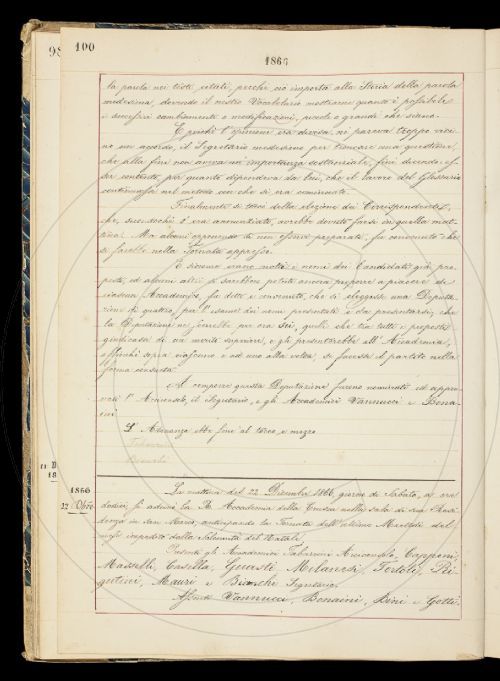 98 100
1866
la parola nei testi citati, perchè ciò importa alla Storia della parola
medesima, dovendo il nostro Vocabolario mostrarne quanto è possibile
i successivi cambiamenti e modificazioni, piccole o grandi che sieno.
E poichè l'opinione era divisa, nè pareva troppo vici-
no un accordo, il Segretario medesimo per troncare una questione,
che alla fine non aveva un'importanza sostanziale, finì dicendo es-
ser contento, per quanto dipendeva da lui, che il lavoro del Glossario
continuasse nel metodo con che si era cominciato.
Finalmente si toccò della elezione dei Corrispondenti,
che, secondochè s'era annunziato, avrebbe dovuto farsi in quella mat-
tina. Ma alcuni esprimendo di non essere preparati, fu convenuto che
si farebbe nella Tornata appresso.
E siccome erano noti i nomi dei Candidati già pro-
posti, ed alcuni altri si sarebbon potuti ancora proporre a piacere di
ciascun Accademico, fu detto e convenuto, che si eleggesse una Deputa-
zione di quattro, per l'esame dei nomi presentati e da presentarsi; che
la Deputazione ne scerrebbe per ora Sei, quelli che tra tutti i proposti
giudicasse di un merito superiore, e gli presenterebbe all'Accademia,
affinchè sopra ciascuno e ad uno alla volta, se facesse il partito nella
forma consueta.
A comporre questa Deputazione furono nominati ed appro-
vati l'Arciconsolo, il Segretario, e gli Accademici Vannucci e Bona-
ini.
L'Adunanza ebbe fine al tocco e mezzo.
Tabarrini
Bianchi
11 D
18
1866
22 Dbre
La mattina del 22 Dicembre 1866, giorno di Sabato, a ore
dodici, si adunò la R. Accademia della Crusca nella sala di sua Resi-
denza in San Marco, anticipando la Tornata dell'ultimo Martedì del
mese impedito dalla Solennità del Natale.
Presenti gli Accademici Tabarrini Arciconsolo, Capponi,
Masselli, Casella, Giusti, Milanesi, Tortoli, Ri-
gutini, Mauri e Bianchi Segretario.
Assenti Vannucci, Bonaini, Bini e Gotti.